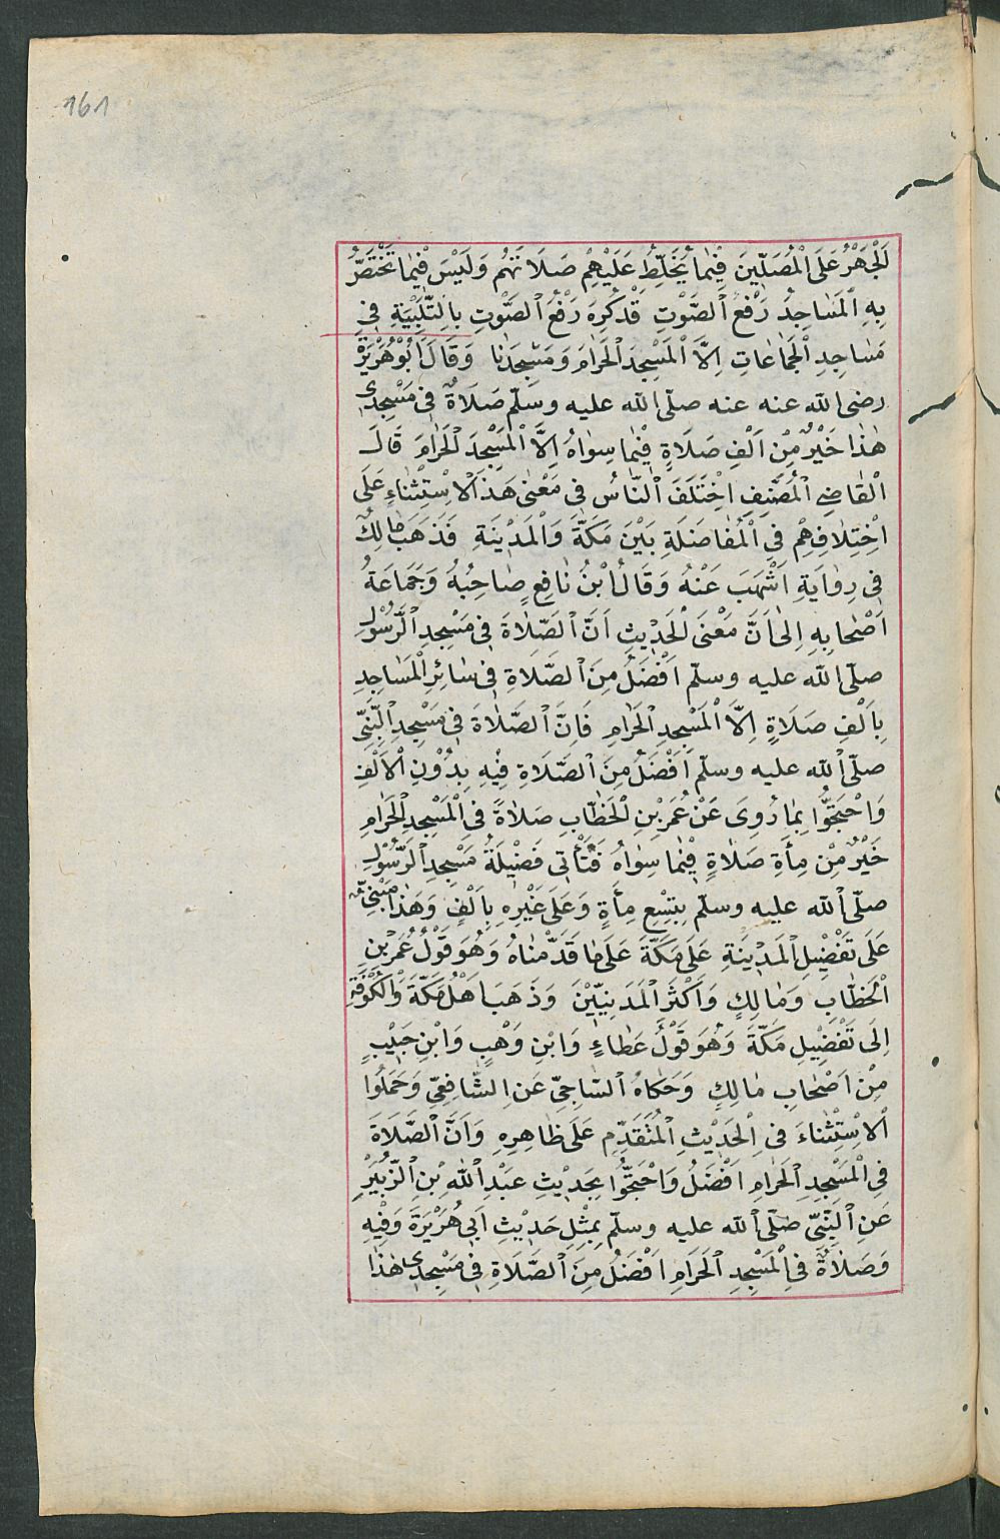 161
الْجَهْرُ عَلَى الْمُصَلِّينَ فِيْمٰا يُخَلِّطُ عَلَيْهِمْ صَلَاتَهُمْ وَلَيْسَ فِيْمٰا تَخْتَصُّ
بِهِ الْمَسٰاجِدُ رَفْعُ الصَّوْتِ قَدْ كُرِهَ رَفْعُ الصَّوْتِ بِالتَّلْبِيَةِ فِي
مَسٰاجِدِ الْجَمٰاعٰاتِ اِلَّا الْمَسْجِدَ الْحَرٰامَ وَمَسْجِدَنٰا وَقَالَ اَبُوْ هُرَيْرَةَ
رضى الله عنه عنه صلّى الله عليه وسلّم صَلَاةٌ فِي مَسْجِدِى
هٰذٰا خَيْرٌ مِنْ اَلْفِ صَلَاةٍ فِيْمٰا سِوٰاهُ اِلَّا الْمَسْجِدَ الْحَرٰامَ قَالَ
الْقٰاضِي الْمُصَنِّفِ اِخْتَلَفَ النّٰاسُ فِي مَعْنٰى هَذَا الْاِسْتِثْنٰاءِ عَلَى
اخْتِلٰافِهِمْ فِي الْمُفٰاضَلَةِ بَيْنَ مَكَّةَ وَالْمَدِيْنَةِ فَذَهَبَ مٰالِكٌ
فِي رِوٰايَةِ اَشْهَبَ عَنْهُ وَقَالَ ابْنُ نٰافِعٍ صٰاحِبُهُ وَجَمَاعَةُ
اَصْحٰابِهِ اِلٰى اَنَّ مَعْنَى الْحَدِيْثِ اَنَّ الصَّلٰاةَ فِي مَسْجِدِ الرَّسُوْلِ
صلّى الله عليه وسلّم اَفْضَلُ مِنَ الصَّلَاةِ فِي سٰائِرِ الْمَسٰاجِدِ
بِاَلْفِ صَلَاةٍ اِلَّا الْمَسْجِدِ الْحَرٰامِ فَاِنَّ الصَّلٰاةَ فِي مَسْجِدِ النَّبِيِّ
صلّى الله عليه وسلّم اَفْضَلُ مِنَ الصَّلَاةِ فِيْهِ بِدُوْنِ الْاَلْفِ
وَاحْتَجُّوا بِمٰا رُوِىَ عَنْ عُمَرَ بْنِ الْخَطّٰابِ صَلٰاةً فِي الْمَسْجِدِ الْحَرٰامِ
خَيْرٌ مِنْ مِأَةِ صَلٰاةٍ فِيْمٰا سِوٰاهُ فَتَأْتِى فَضِيْلَةُ مَسْجِدِ الرَّسُوْلِ
صلّى الله عليه وسلّم بِتِسْعِ مِأَةٍ وَعَلَى غَيْرِهِ بِاَلْفٍ وَهَذٰا مَبْنِيٌّ
عَلَى تَفْضِيْلِ الْمَدِيْنَةِ عَلَى مَكَّةَ عَلَى مٰا قَدَّمْنٰاهُ وَهُوَ قَوْلُ عُمَرَ بْنِ
الْخَطّٰابِ وَمٰالِكٍ وَاَكْثَرِ الْمَدَنِيّيْنَ وَذَهَبَ اَهْلُ مَكَّةَ وَالْكُوْفَةِ
اِلَى تَفْضِيْلِ مَكَّةَ وَهُوَ قَوْلُ عَطٰاءٍ وَابْنِ وَهْبٍ وَابْنِ حَبِيْبٍ
مِنْ اَصْحٰابِ مٰالِكٍ وَحَكٰاهُ السّٰاجِيّ عَنِ الشّٰافِعِيّ وَحَمَلُوا
الْاِسْتِثْنٰاءَ فِي الْحَدِيْثِ الْمُتَقَدِّمِ عَلَى ظٰاهِرِهِ وَاَنَّ الصَّلَاةَ
فِي الْمَسْجِدِ الْحَرٰامِ اَفْضَلُ وَاحْتَجُّوا بِحَدِيْثِ عَبْدِ اللّٰهِ بْنِ الزُّبَيْرِ
عَنِ النَّبِيّ صلّى الله عليه وسلّم بِمِثْلِ حَدِيْثِ اَبِي هُرَيْرَةَ وَفِيْهِ
وَصَلَاةٌ فِي الْمَسْجِدِ الْحَرَامِ اَفْضَلُ مِنَ الصَّلَاةِ فِي مَسْجِدِى هٰذٰا